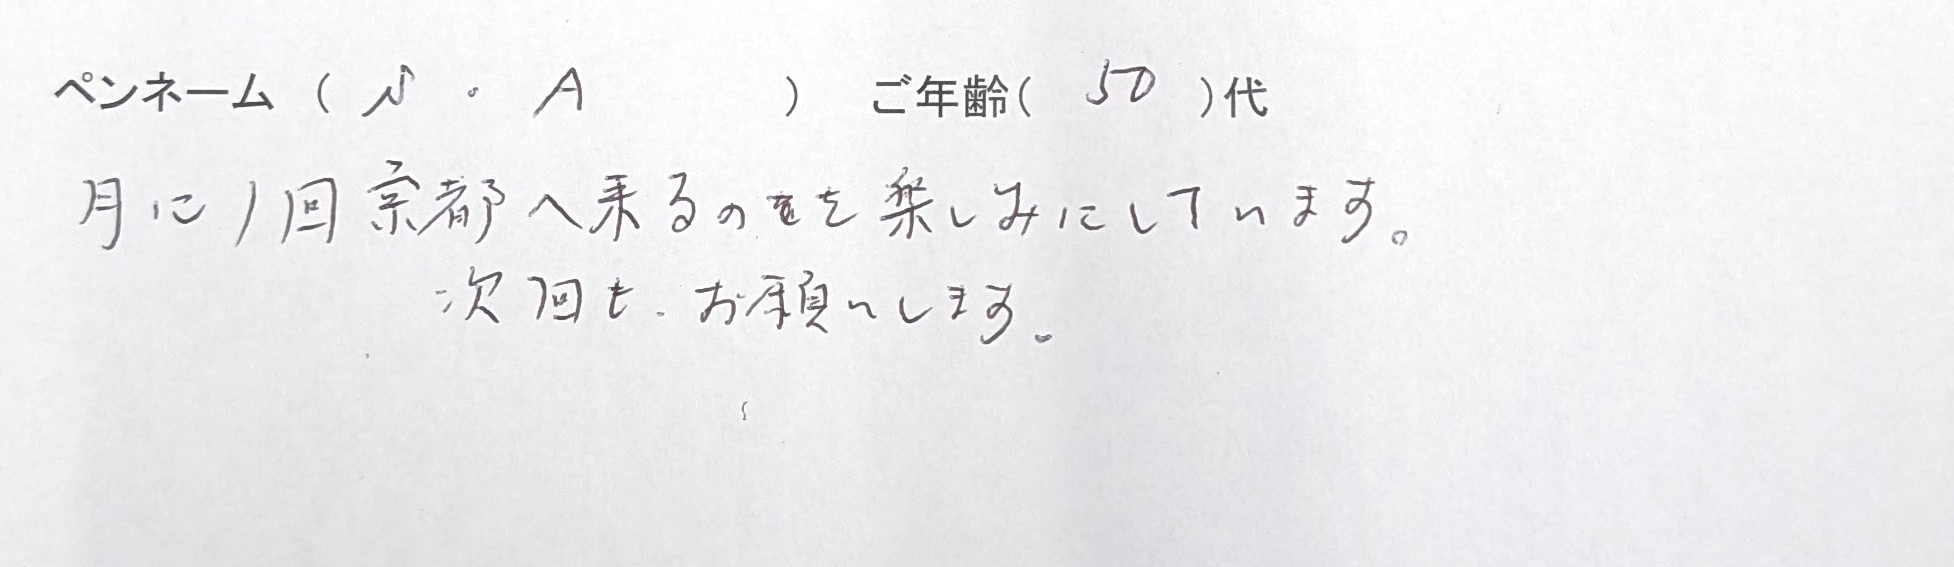 ペンネーム ( N . A ) ご年齢( 50 )代
月に1回京都へ乗るのを楽しみにしています。
次回も.お願いします。